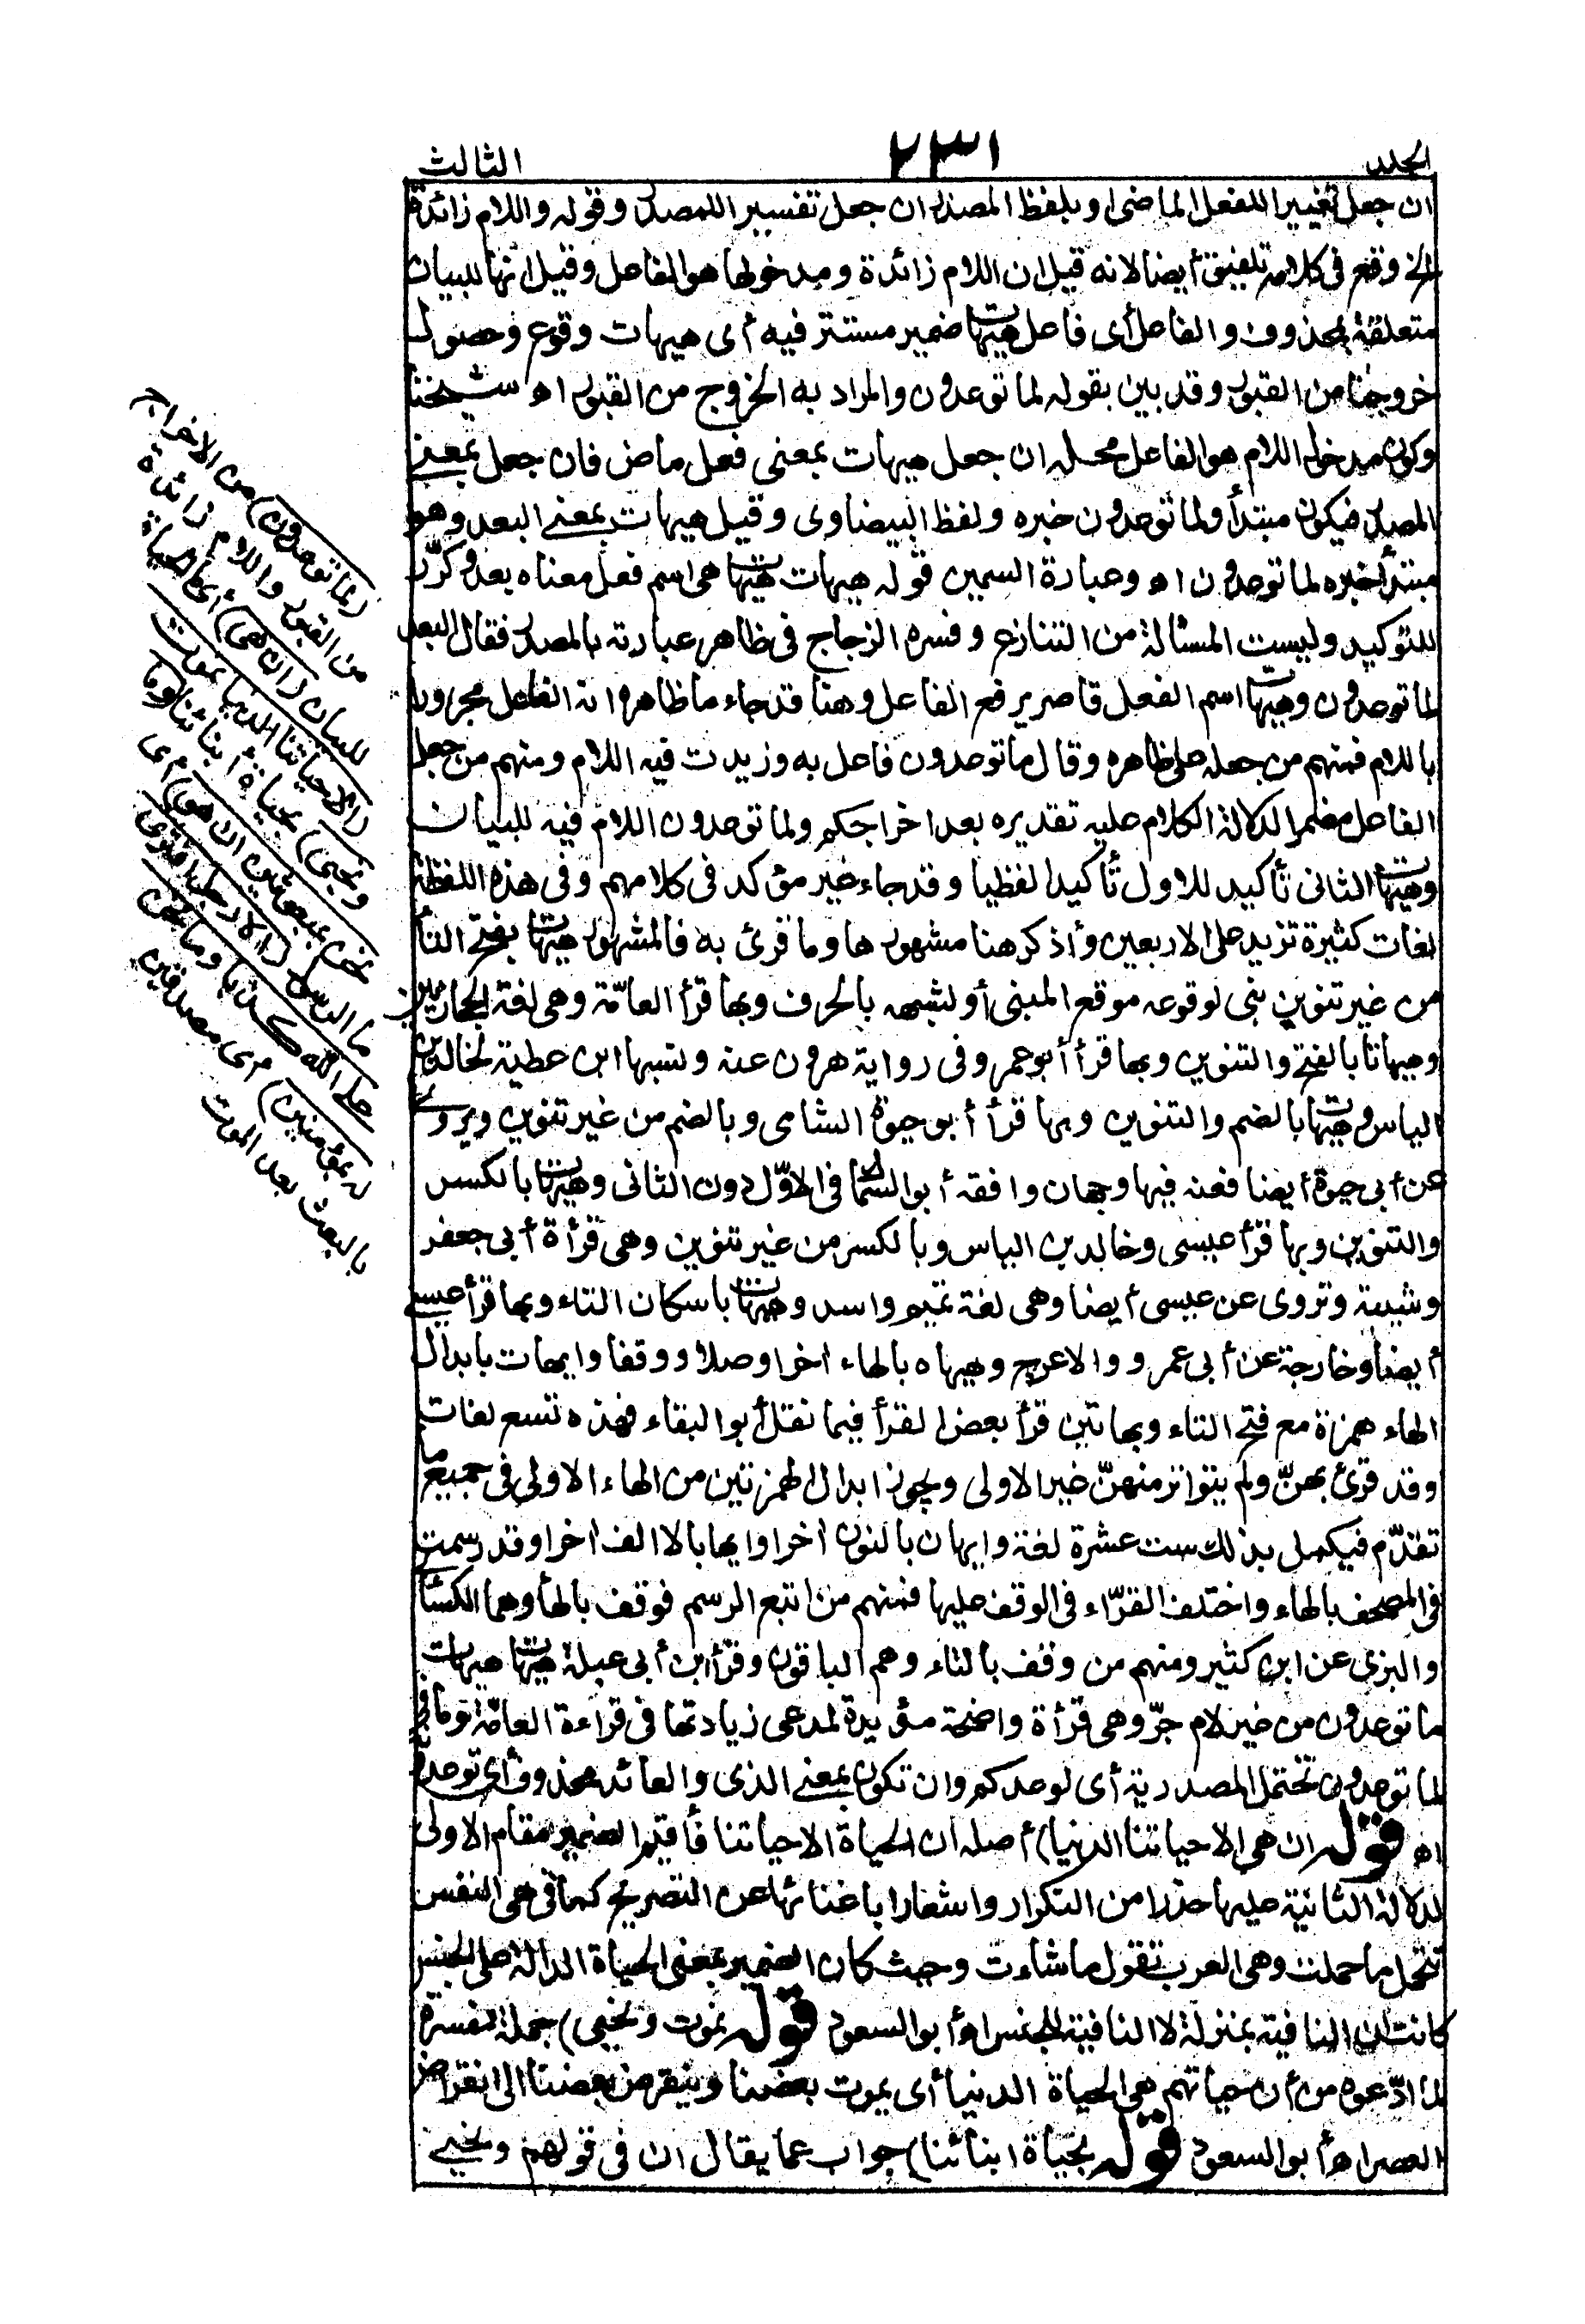 الجلد ٢٣١ الثالث
ان جعل تغييرا للفعل الماضى او بلفظ المصدر ان جعل تفسيرا للمصدر وقوله واللام زائدة
الخ وقع فى كلامه تلفيق أيضا لانه قيل ان اللام زائدة ومدخولها هو الفاعل وقيل انها للبيان
متعلقة بمحذوف والفاعل أى فاعل هيهات ضمير مستتر فيه أى هيهات وقوع وحصول
خروجنا من القبور وقد بين بقوله لما توعدون والمراد به الخروج من القبور اه شيخنا
وكون مدخول اللام هو الفاعل محله ان جعل هيهات بمعنى فعل ماض فان جعل بمعنى
المصدر فيكون مبتدأ ولما توعدون خبره ولفظ البيضاوى وقيل هيهات بمعنى البعد وهو
مبتدأ خبره لما توعدون اه وعبارة السمين قوله هيهات هيهات هى اسم فعل معناه بعد وكرّر
للتوكيد وليست المسئالة من التنازع وفسره الزجاج فى ظاهر عبارته بالمصدر فقال البعد
لما توعدون وهيهات اسم الفعل قاصر يرفع الفاعل وهنا قد جاء ما ظاهره انه الفاعل مجرورا
باللام فمنهم من جعله على ظاهره وقال ما توعدون فاعل به وزيدت فيه اللام ومنهم من جعل
الفاعل مضمرا لدلالة الكلام عليه تقديره بعد اخراجكم ولما توعدون اللام فيه للبيان
وهيهات الثانى تأكيد للاول تأكيدا لفظيا وقد جاء غير مؤكد فى كلامهم وفى هذه اللفظة
لغات كثيرة تزيد على الاربعين وأذكر هنا مشهورها وما قرئ به فالمشهور هيهات بفتح التأ
من غير تنوين بنى لوقوعه موقع المبنى أو لشبهه بالحرف وبها قرأ العامّة وهى لغة الحجازيين
وهيهاتا بالفتح والتنوين وبها قرأ أبو عمرو فى رواية هرون عنه ونسبها ابن عطية لخالد بن
الياس وهيهات بالضم والتنوين وبها قرأ أبو حيوة الشامى وبالضم من غير تنوين ويروى
عن أبى حيوة أيضا فعنه فيها وجهان وافقه أبو السماك فى الاوّل دون الثانى وهيهات بالكسر
والتنوين وبها قرأ عيسى وخالد بن الياس وبالكسر من غير تنوين وهى قرأة أبى جعفر
وشيبة وتروى عن عيسى أيضا وهى لغة تميم واسد وهيهات باسكان التاء وبها قرأ عيسى
أيضا وخارجة عن أبى عمرو والاعرج وهيهاه بالهاء اخرا وصلا ووقفا وايهات بابدال
الهاء همزة مع فتح التاء وبهاتين قرأ بعض القرأ فيما نقل أبو البقاء فهذه تسع لغات
وقد قرئ بهنّ ولم يتواتر منهنّ غير الاولى ويجوز ابدال الهمزتين من الهاء الاولى فى جميع ما
تقدّم فيكمل بذلك ست عشرة لغة وايهان بالنون اخرا وايها بالالف اخرا وقد رسمت
فى المصحف بالهاء واختلف القرّاء فى الوقف عليها فمنهم من اتبع الرسم فوقف بالهأ وهما الكسأ
والبزى عن ابن كثير ومنهم من وقف بالتاء وهم الباقون وقرأ ابن أبى عبلة هيهات هيهات
ما توعدون من غير لام جرّ وهى قرأة واضحة مؤيدة لمدعى زيادتها فى قراءة العامّة وما فى
لما توعدون تحتمل المصدرية أى لوعدكم وان تكون بمعنى الذى والعائد محذوف أى توعدونه
اه قوله ان هى الا حياتنا الدنيا) أصله ان الحياة الا حياتنا فأقيم الضمير مقام الاولى
لدلالة الثانية عليها حذرا من التكرار واشعارا باغنائها عن التصريح كما فى هى النفس
تتحمل ما حملت وهى العرب تقول ما شاءت وحيث كان الضمير بمعنى الحياة الدالة على الجنس
كانت ان النافية بمنزلة لا النافية للجنس اه أبو السعود قوله نموت ونحيى) جملة مفسرة
لما ادّعوه من أن حياتهم هى الحياة الدنيا أى يموت بعضنا وينقرض بعضنا الى انقراض
العصر اه أبو السعود قوله بحياة ابنائنا) جواب عما يقال ان فى قولهم ونحيى
(لما توعدون) من الاخراج
من القبور واللام زائدة
للبيان (ان هى) أى الحياة
(الا حياتنا الدنيا نموت
ونحيى) بحياة أبنائنا (وما
نحن بمبعوثين ان هو) أى
ما الرسول (الا رجل افترى
على الله كذبا وما نحن
له بمؤمنين) أى مصدقين
بالبعث بعد الموت